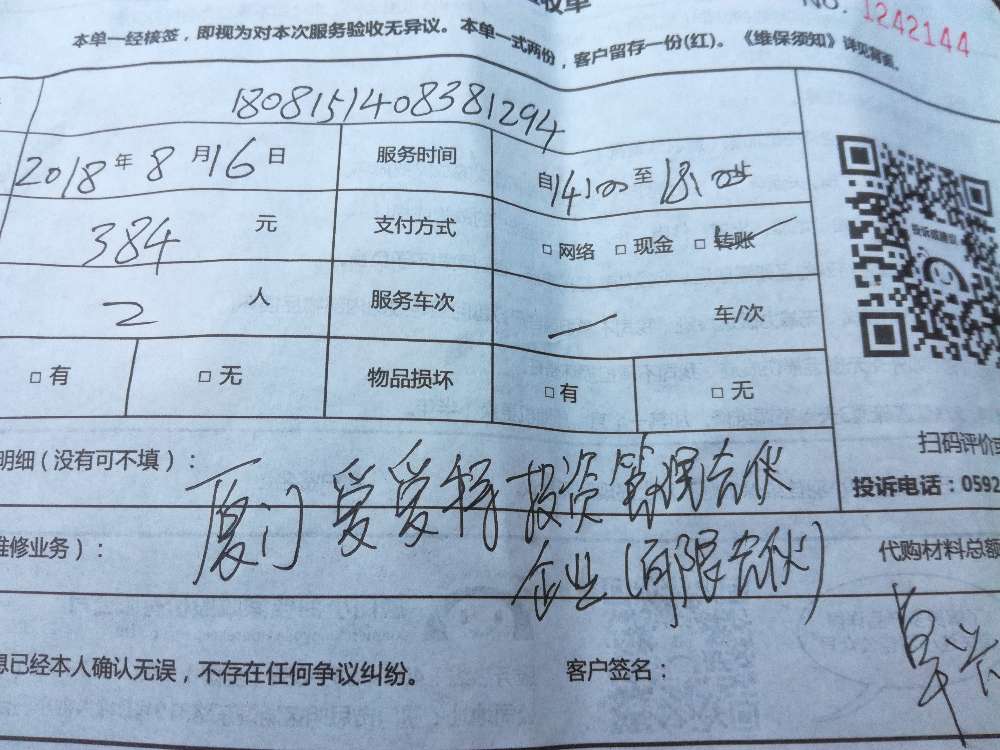 收单
NO. 1242144
本单一经核签，即视为对本次服务验收无异议。本单一式两份，客户留存一份(红)。《维保须知》详见背面。
180815140838 1294
2018年8月16日 服务时间 自14:00至18:00止
384 元 支付方式 □ 网络 □ 现金 □ 转账
投诉或建议
2 人 服务车次 一 车/次
□ 有 □ 无 物品损坏 □ 有 □ 无
扫码评价或
明细（没有可不填）：
投诉电话：0592
厦门爱爱特投资管理合伙
企业（有限合伙）
维修业务）：
代购材料总额
息已经本人确认无误，不存在任何争议纠纷。 客户签名：